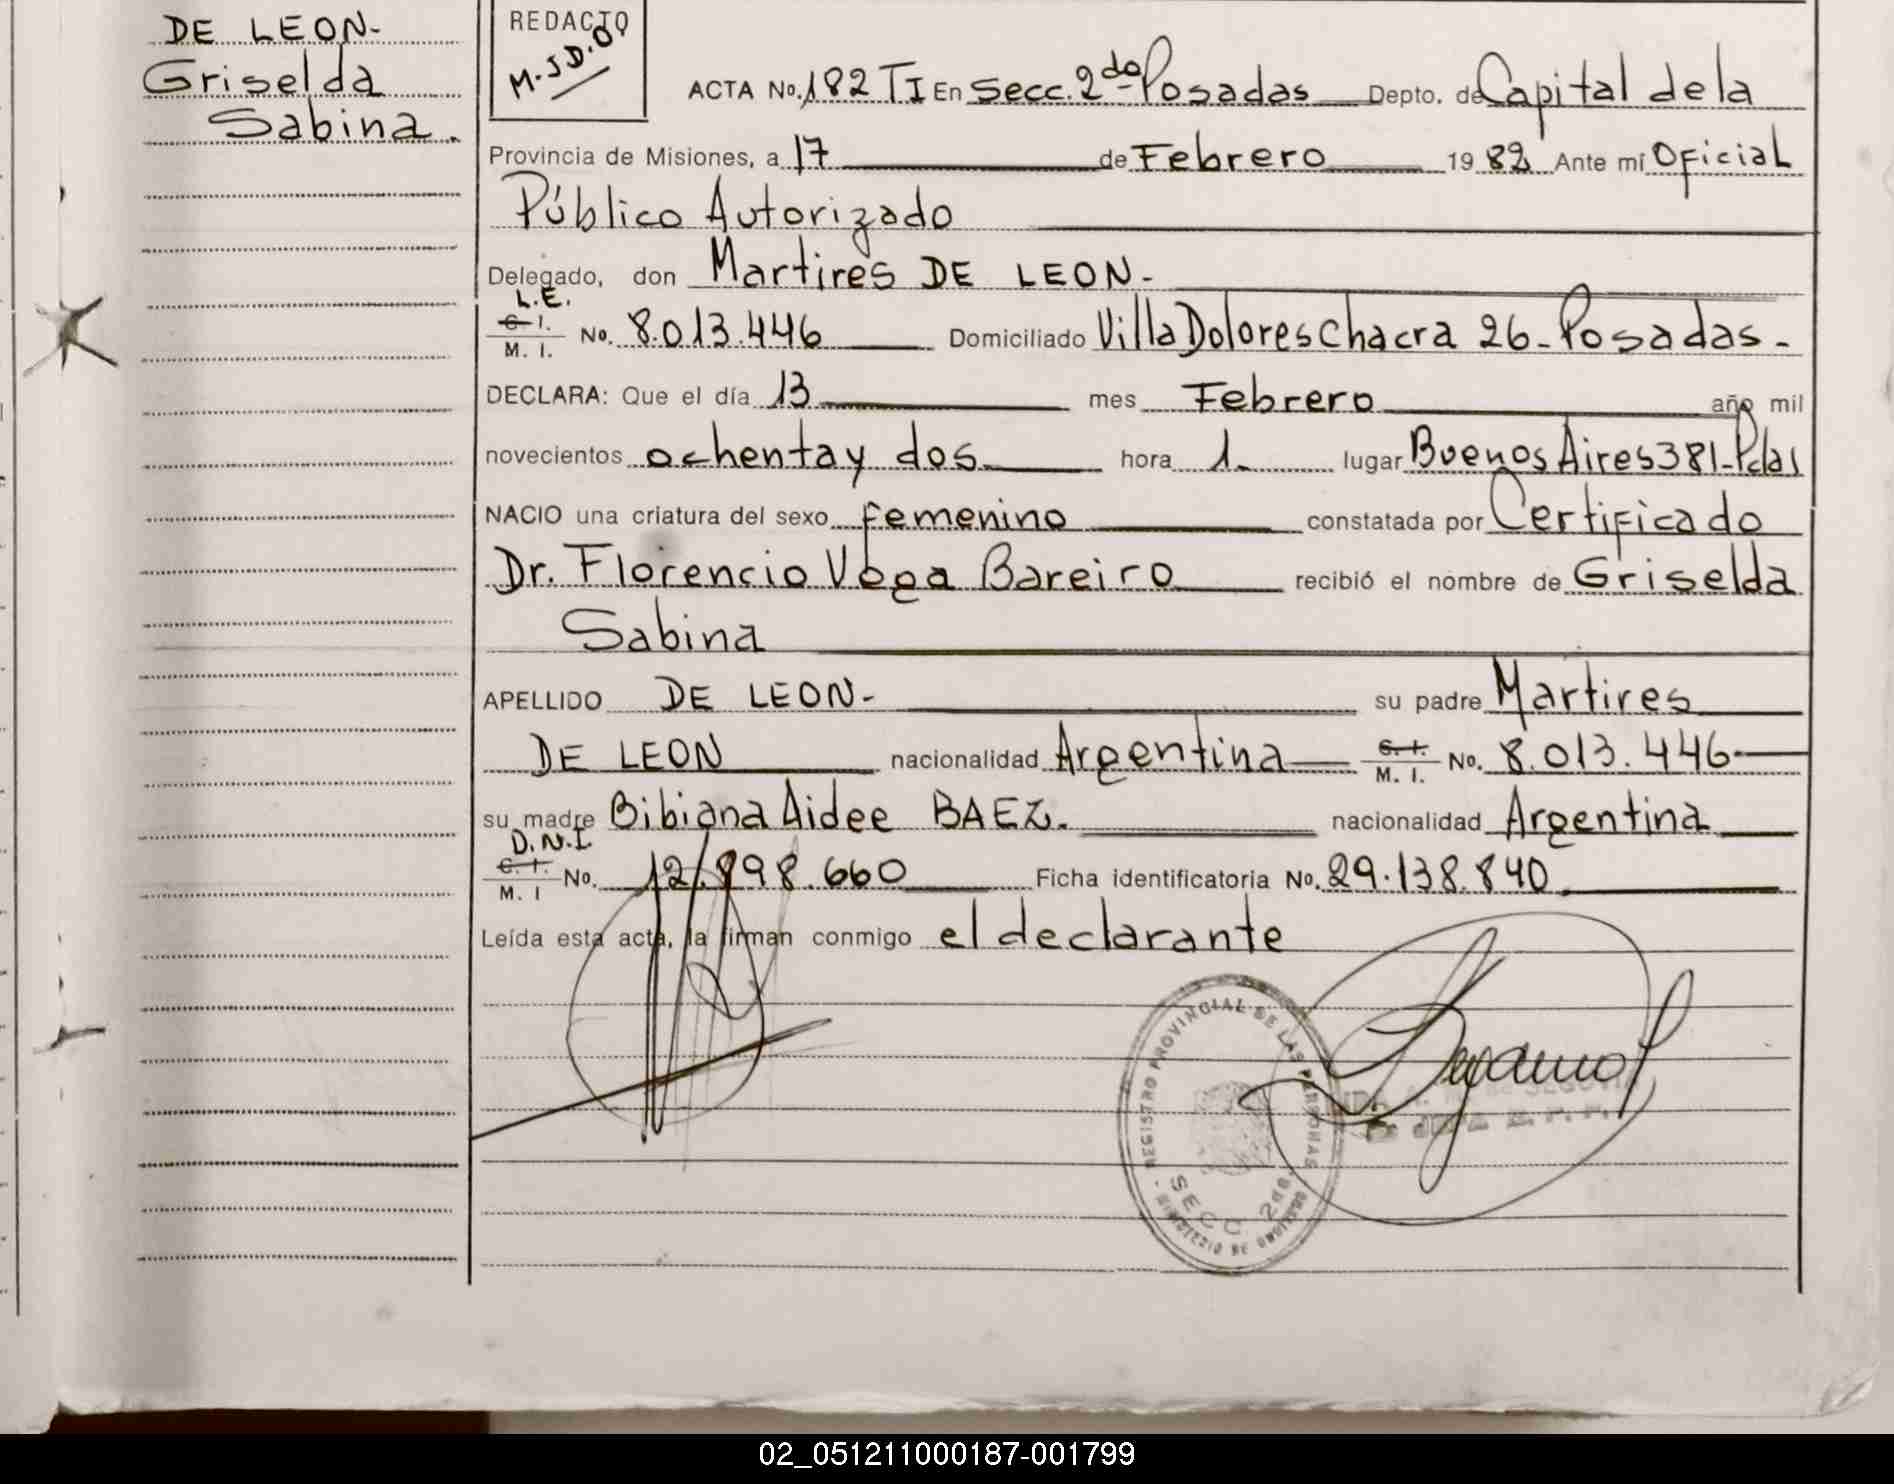 DE LEON-
Griselda
Sabina.
REDACTO
M.J.D.O.
ACTA No. 182 TI En Secc. 2da Posadas Depto. de Capital de la
Provincia de Misiones, a 17 de Febrero 1982 Ante mí Oficial
Público Autorizado
Delegado, don Martires DE LEON-
L.E.
C. I. M. I. No. 8.013.446 Domiciliado Villa Dolores Chacra 26-Posadas-
DECLARA: Que el día 13 mes Febrero año mil
novecientos ochenta y dos hora 1. lugar Buenos Aires 381-Pdas
NACIO una criatura del sexo femenino constatada por Certificado
Dr. Florencio Vega Bareiro recibió el nombre de Griselda
Sabina
APELLIDO DE LEON- su padre Martires
DE LEON nacionalidad Argentina C. I. M. I. No. 8.013.446
su madre Bibiana Aidee BAEZ. nacionalidad Argentina
D.N.I
C. I. M. I No. 12.898.660 Ficha identificatoria No. 29.138.840
Leída esta acta, la firman conmigo el declarante
REGISTRO PROVINCIAL DE LAS PERSONAS
SECC. 2da
MINISTERIO DE GOBIERNO
02_051211000187-001799